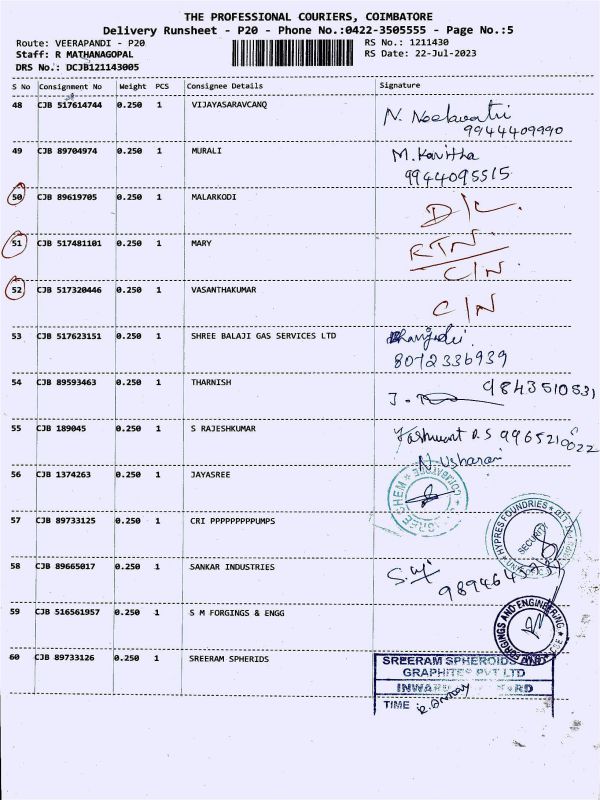 THE PROFESSIONAL COURIERS, COIMBATORE
Delivery Runsheet - P20 - Phone No.:0422-3505555 - Page No.:5
Route: VEERAPANDI - P20 RS No.: 1211430
Staff: R MATHANAGOPAL RS Date: 22-Jul-2023
DRS No.: DCJB121143005
S No Consignment No Weight PCS Consignee Details Signature
48 CJB 517614744 0.250 1 VIJAYASARAVCANQ N. Neelavathi
9944409990
49 CJB 89704974 0.250 1 MURALI M. Kavitha
9944095515
50 CJB 89619705 0.250 1 MALARKODI D/L.
51 CJB 517481101 0.250 1 MARY RTN.
C/N
52 CJB 517320446 0.250 1 VASANTHAKUMAR C/N
53 CJB 517623151 1 0.250 SHREE BALAJI GAS SERVICES LTD
8072336939
54 CJB 89593463 0.250 1 THARNISH 9843510531
55 CJB 189045 0.250 1 S RAJESHKUMAR Yashwant R.S 9965210022
N. Usharani
56 CJB 1374263 0.250 1 JAYASREE
57 CJB 89733125 0.250 1 CRI PPPPPPPPPUMPS HYPRES FOUNDRIES
SECURITY
58 CJB 89665017 0.250 1 SANKAR INDUSTRIES
59 CJB 516561957 0.250 1 S M FORGINGS & ENGG FORGINGS AND ENGINEERING
60 CJB 89733126 0.250 1 SREERAM SPHERIDS SREERAM SPHEROIDS
GRAPHITES PVT LTD
INWARD
TIME